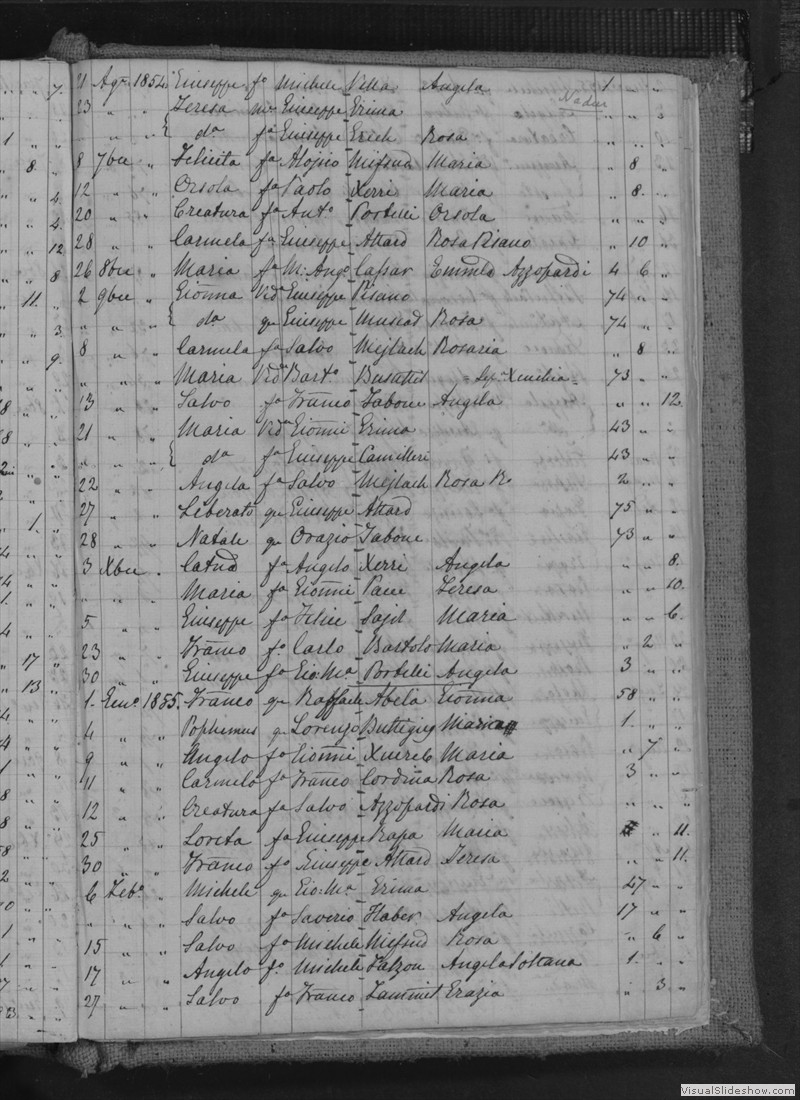 21 Agto 1854 Giuseppe fo Michele Vella Angela 1 " "
Nadur
23 " " Teresa me Giuseppe Grima " " "
" " { da fa Giuseppe Grech Rosa
8 7bre " Felicita fa Aloisio Mifsud Maria " 8 "
12 " " Orsola fa Paolo Xerri Maria " 8 "
20 " " Creatura fa Anto Portelli Orsola " " "
28 " " Carmela fa Giuseppe Attard Rosa Pisano " 10 "
26 8bre " Maria fa M. Ango Cassar Emmla Azzopardi 4 6 "
2 9bre " Gionna Vida Giuseppe Pisano 74 " "
" " " { da qm Giuseppe Muscad Rosa 74 " "
8 " " Carmela fa Salvo Mejlach Rosaria " 8 "
" " " Maria Vida Barto Busuttil 73 " "
13 " " Salvo fo Franco Tabone Angela " " 12
21 " " Maria Vida Gionni Grima 43 " "
" " { da fa Giuseppe Camilleri 43 " "
22 " " Angela fa Salvo Mejlach Rosa 2 " "
27 " " Liberato qm Giuseppe Attard 75 " "
28 " " Natale qm Orazio Tabone 73 " "
3 Xbre " Catna fa Angelo Xerri Angela " " 8
" " " Maria fa Gionni Pace Teresa " " 10
5 " " Giuseppe fo Felice Sajd Maria " " 6
23 " " Franco fo Carlo Bartolo Maria " 2 "
30 " " Giuseppe fo Gio: Ma Portelli Angela 3 " "
1 Geno 1855 Franco qm Raffaele Abela Gionna 58 " "
4 " " Pophemus q Lorenzo Buttigieg Maria 1 " "
9 " " Angelo fo Gionni Xuereb Maria " 7 "
11 " " Carmelo fo Franco Cordina Rosa 3 " "
12 " " Creatura fa Salvo Azzopardi Rosa " " "
25 " " Loreta fa Giuseppe Rapa Maria " 11
30 " " Franco fo Giuseppe Attard Teresa " " 11
6 Febo " Michele qm Gio: Ma Grima 27 " "
" " " Salvo fo Saverio Haber Angela 17 " "
15 " " Salvo fo Michele Mifsud Rosa " 6 "
17 " " Angelo fo Michele Falzon Angela Soltana 1 " "
27 " " Salvo fo Franco Tammut Grazia " 3 "
VisualSlideshow.com